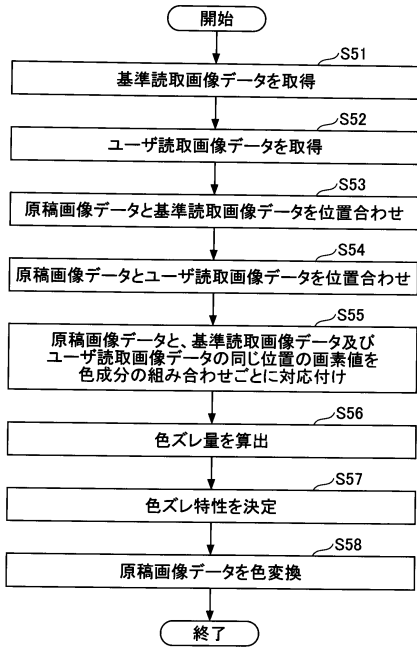 開始
S51
基準読取画像データを取得
S52
ユーザ読取画像データを取得
S53
原稿画像データと基準読取画像データを位置合わせ
S54
原稿画像データとユーザ読取画像データを位置合わせ
S55
原稿画像データと、基準読取画像データ及び
ユーザ読取画像データの同じ位置の画素値を
色成分の組み合わせごとに対応付け
S56
色ズレ量を算出
S57
色ズレ特性を決定
S58
原稿画像データを色変換
終了